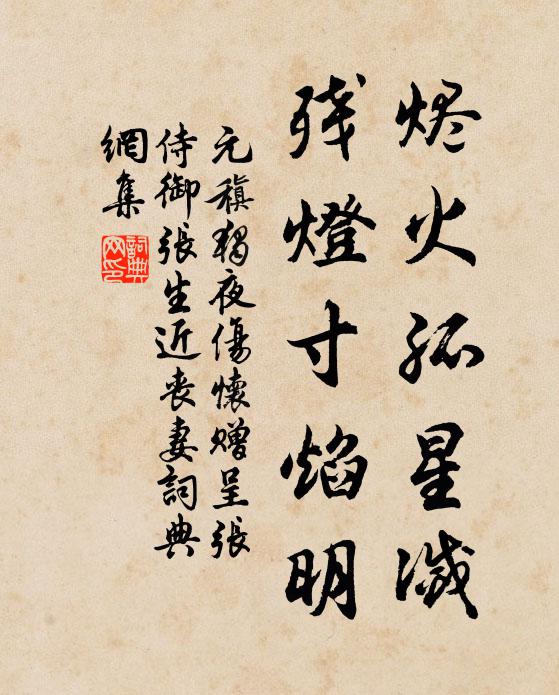 烬火孤星灭
残燈寸焰明
元稹獨夜傷懷赠呈張
侍御張生近丧妻詞典
網集
詞典
网印